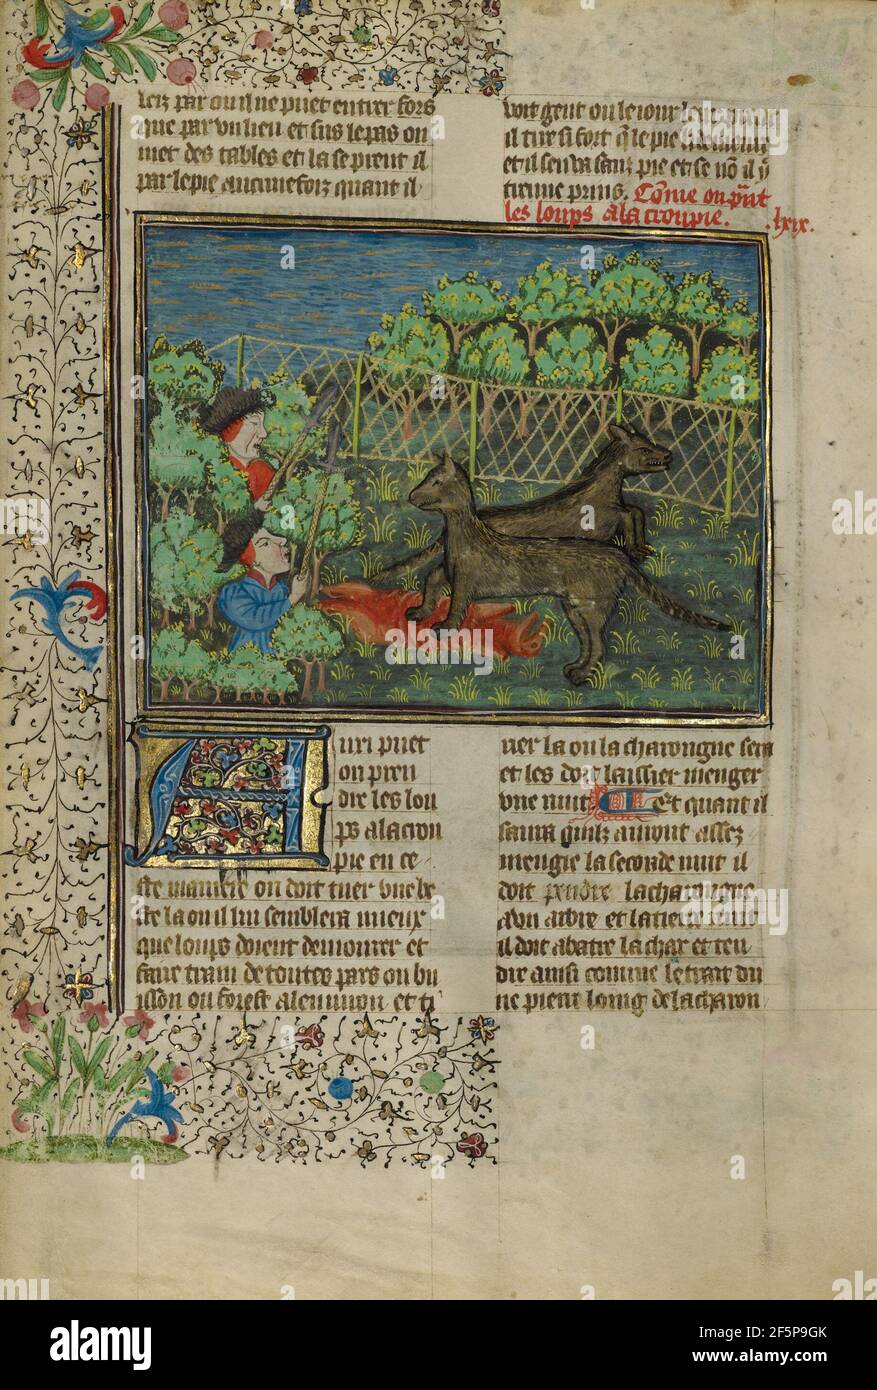 leiz par ou il ne puet entrer fors
que par vn lieu et sus le pas on
met des tables et la se prent il
par le pie aucunefoiz quant il
voit gent ou le iour
il tire si fort q̃ le pie
et il sen va sanz pie et se nõ il y
tienne prins. Cõme on pũt
les loups a la croupie. .lxix.
Auxi puet
on pren
dre les lou
ps a la crou
pie en ce
ste maniere on doit tuer vne be
ste la ou il lui semblera mieux
que loups doient demourer et
faire train de toutes pars ou bu
isson ou forest alenuiron et ti
rer la ou la charongne sera
et les doit laissier menger
vne nuit Et quant il
saura quilz auront assez
mengie la seconde nuit il
doit pendre la charongne
a vn arbre et la tierce nuit
il doit abatre la char et ten
dre ainsi comme le trait du
ne pierre loing de la charon
a
alamy
alamy
Image ID: 2F5P9GK
www.alamy.com